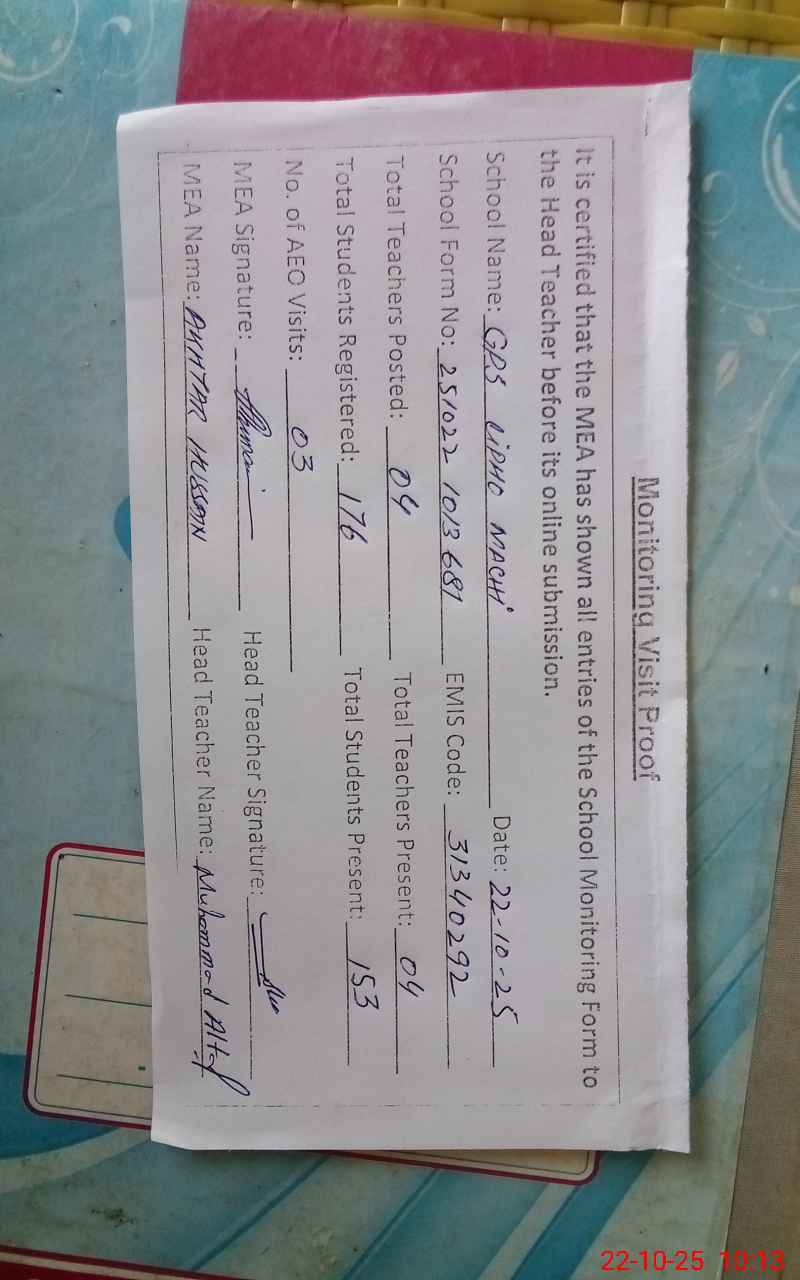 Monitoring Visit Proof
It is certified that the MEA has shown all entries of the School Monitoring Form to
the Head Teacher before its online submission.
School Name: GPS LiPHO MACHi Date: 22-10-25
School Form No: 251022 1013 681 EMIS Code: 31340292
Total Teachers Posted: 04 Total Teachers Present: 04
Total Students Registered: 176 Total Students Present: 153
No. of AEO Visits: 03
MEA Signature: Head Teacher Signature:
MEA Name: AKHTAR HUSSAIN Head Teacher Name: Muhammad Altaf
22-10-25 10:13